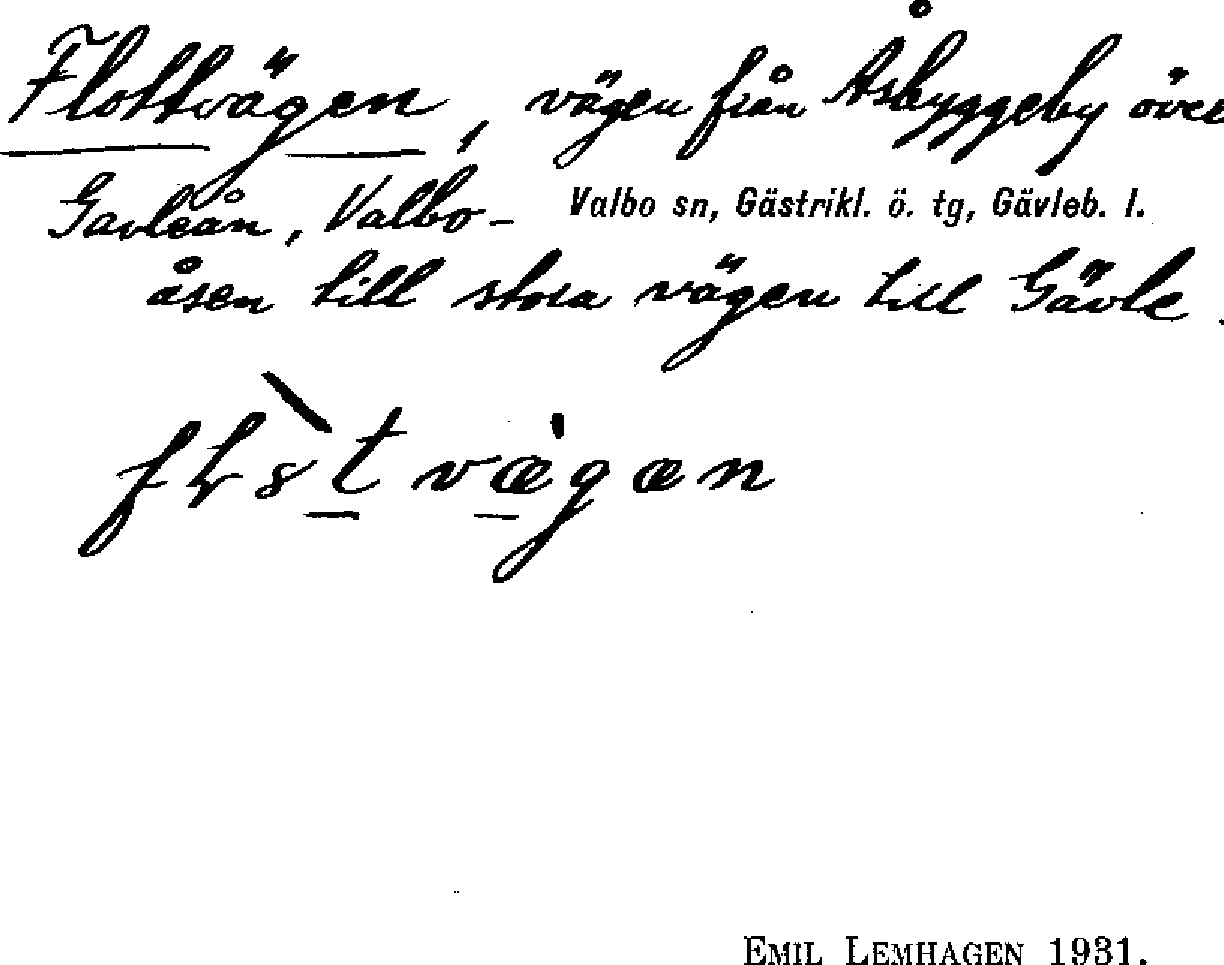 Flottvägen, vägen från Åsbyggeby över
Gavleån, Valbo- Valbo sn, Gästrikl. ö. tg, Gävleb. l.
åsen till stora vägen till Gävle.
EMIL LEMHAGEN 1931.